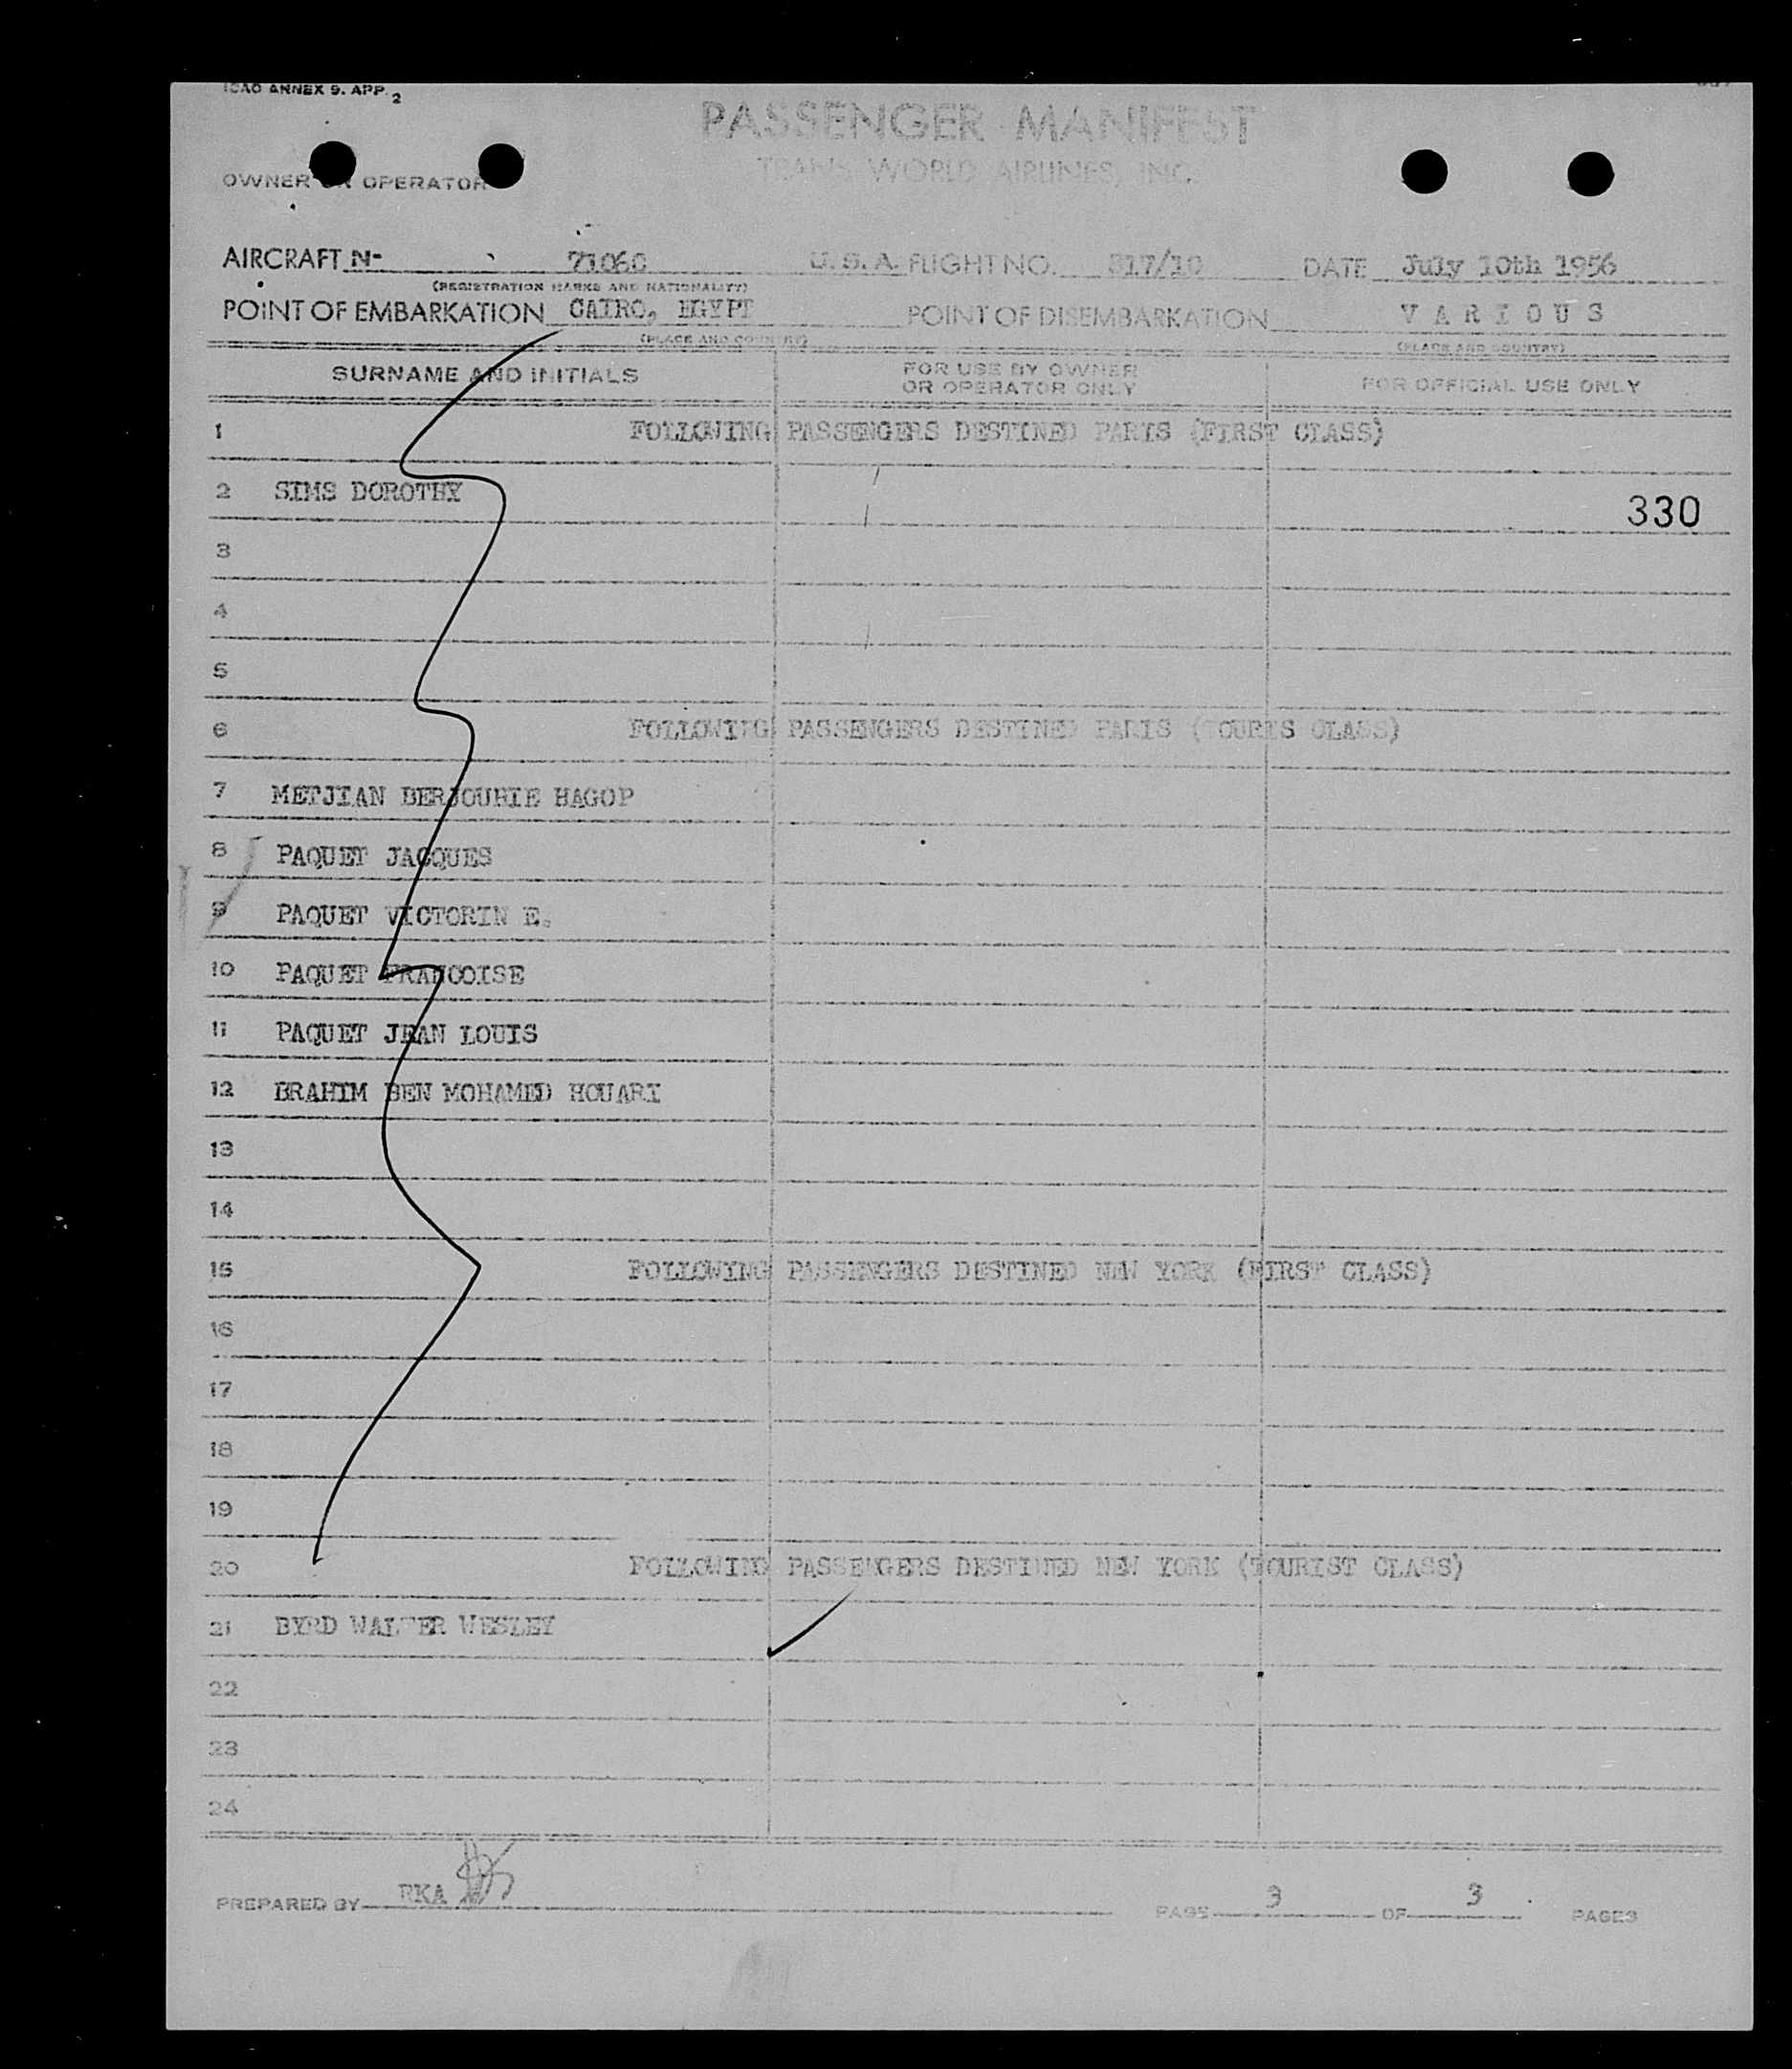 ICAO ANNEX 9. APP. 2
PASSENGER MANIFEST
TRANS WORLD AIRLINES, INC.
OWNER OR OPERATOR
AIRCRAFT N- U. S. A. FLIGHT NO. 817/10 DATE July 10th 1956
(REGISTRATION MARKS AND NATIONALITY)
POINT OF EMBARKATION CAIRO, EGYPT POINT OF DISEMBARKATION V A R I O U S
(PLACE AND COUNTRY) (PLACE AND COUNTRY)
SURNAME AND INITIALS FOR USE BY OWNER OR OPERATOR ONLY FOR OFFICIAL USE ONLY
1 FOLLOWING PASSENGERS DESTINED PARIS (FIRST CLASS)
2 SIMS DOROTHY
330
3
4
5
6 FOLLOWING PASSENGERS DESTINED PARIS (TOURIS CLASS)
7 METJIAN BERJOUHIE HAGOP
8 PAQUET JACQUES
9 PAQUET VICTORIN E.
10 PAQUET FRANCOISE
11 PAQUET JEAN LOUIS
12 BRAHIM BEN MOHAMED HOUARI
13
14
15 FOLLOWING PASSENGERS DESTINED NEW YORK (FIRST CLASS)
16
17
18
19
20 FOLLOWING PASSENGERS DESTINED NEW YORK (TOURIST CLASS)
21 BYRD WALTER WESLEY
22
23
24
PREPARED BY RKA PAGE 3 OF 3 PAGES